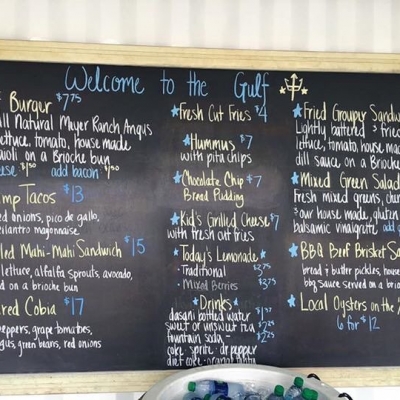 Welcome to the Gulf
Burger $7.75
All Natural Meyer Ranch Angus
lettuce, tomato, house made
aioli on a Brioche bun
add bacon $1.50
Tacos $13
onions, pico de gallo,
cilantro mayonnaise
Mahi-Mahi Sandwich $15
lettuce, alfalfa sprouts, avocado,
on a brioche bun
Cobia $17
peppers, grape tomatoes,
green beans, red onions
Fresh Cut Fries $4
Hummus $7
with pita chips
Chocolate Chip $7
Bread Pudding
Kid's Grilled Cheese $7
with fresh cut fries
Today's Lemonade
-Traditional $3.75
-Mixed Berries $3.75
Drinks
dasani bottled water
sweet or unsweet tea
fountain soda -
coke sprite dr pepper
diet coke
Fried Grouper
Lightly battered & fried
lettuce, tomato, house
dill sauce on a Brioche
Mixed Green Salad
fresh mixed greens,
our house made, gluten
balsamic vinaigrette add
BBQ Beef Brisket
bread & butter pickles, house
bbq sauce served on a
Local Oysters on the
6 for $12